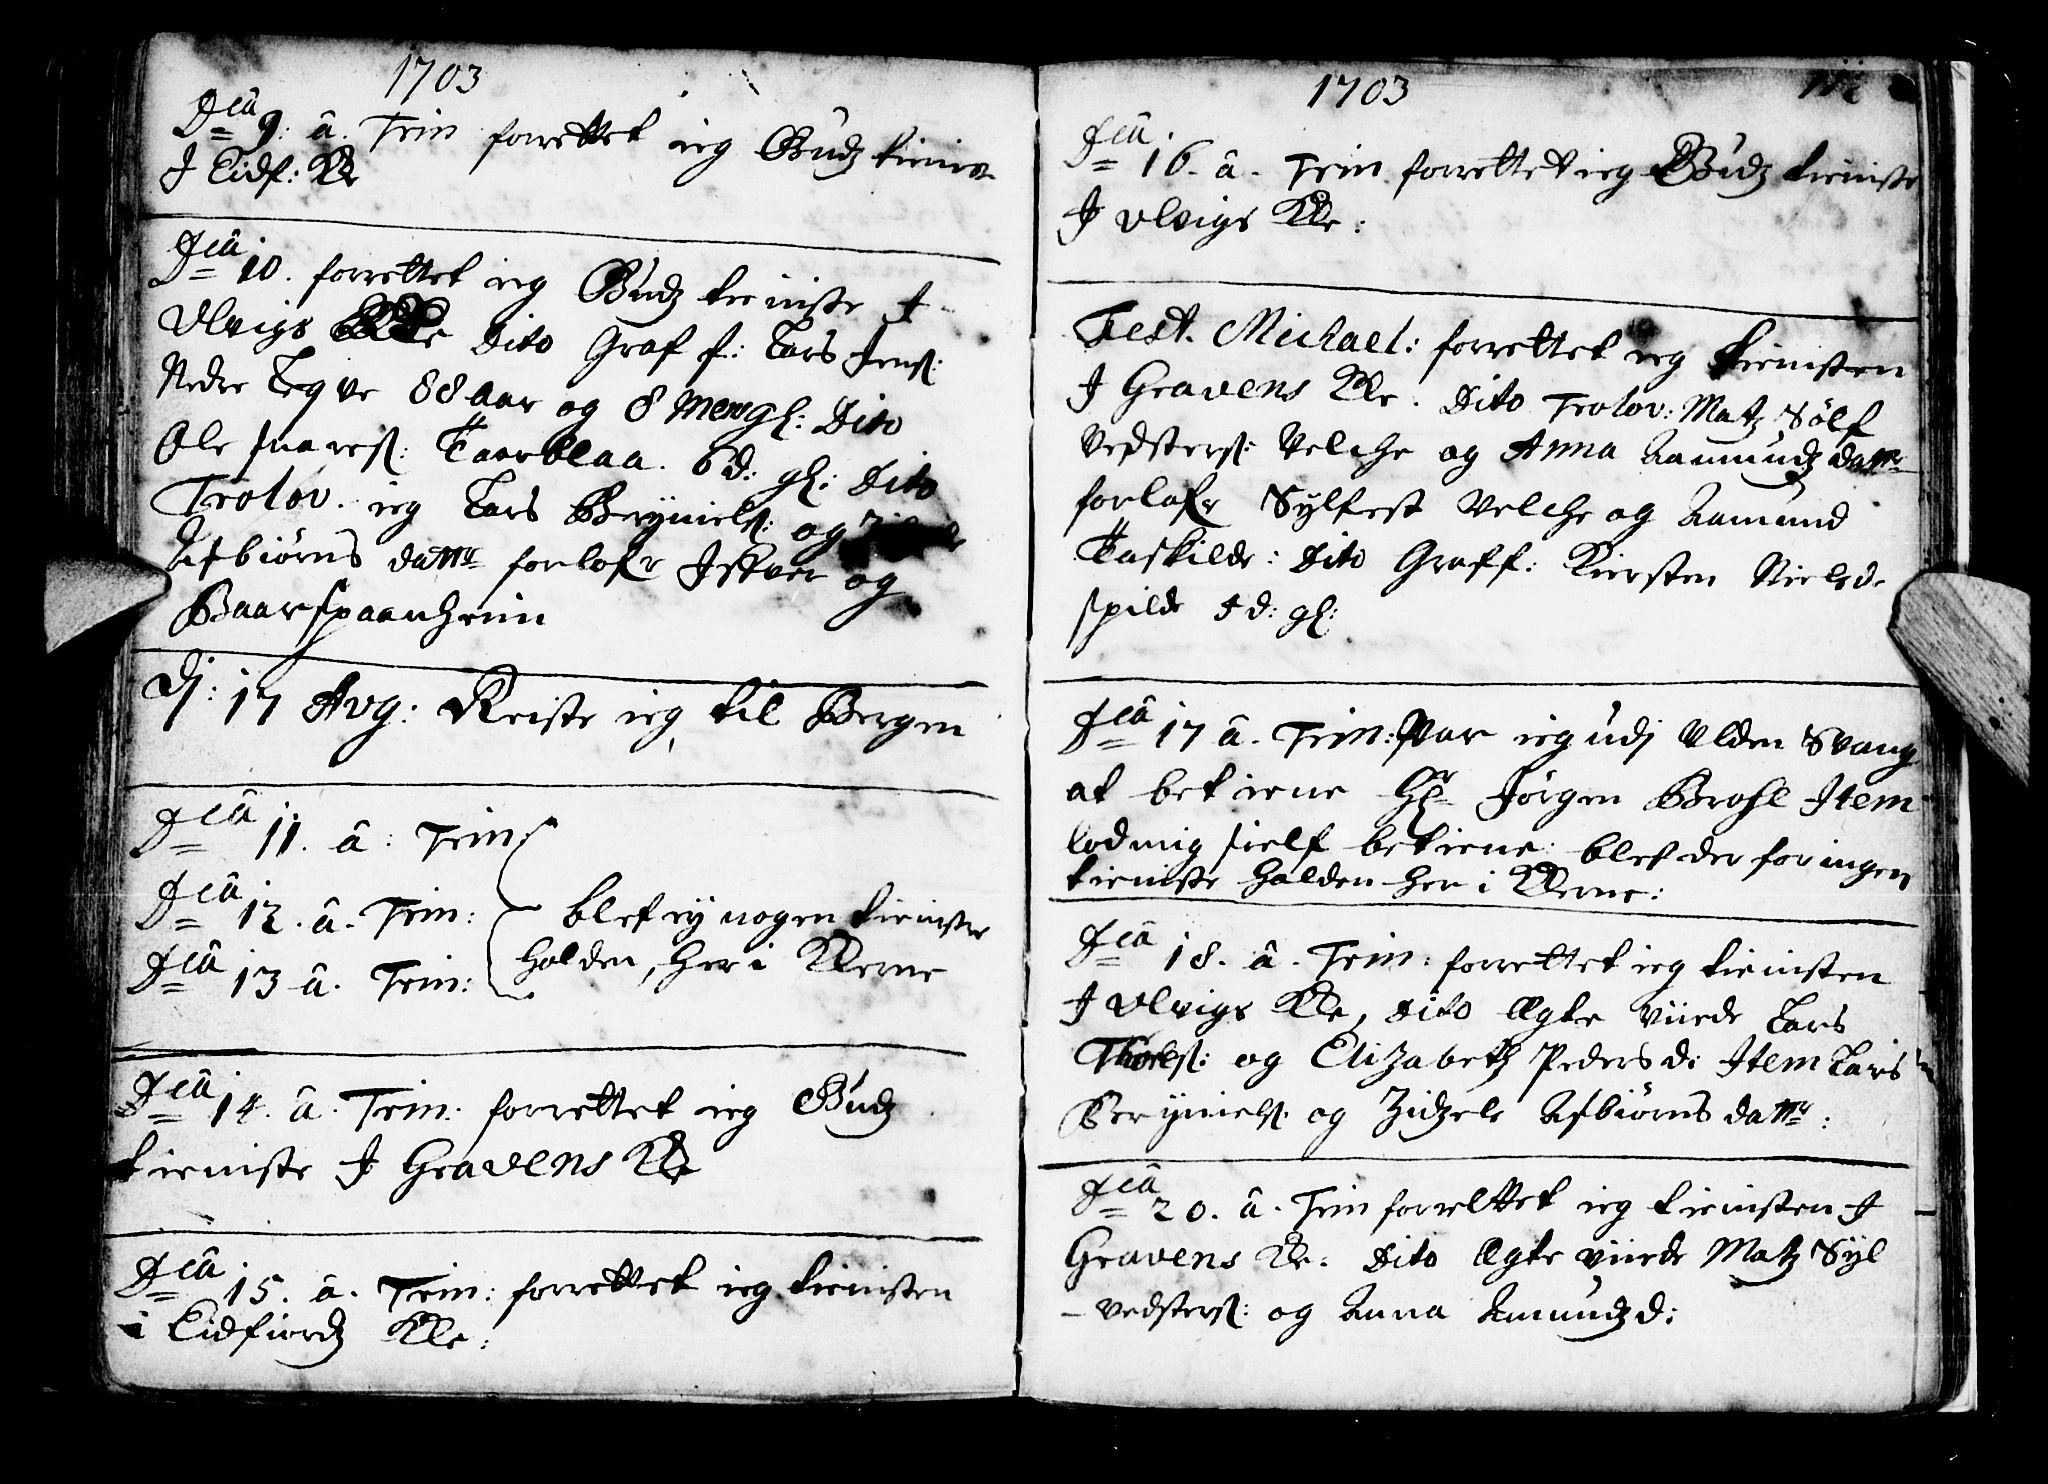 1703
Dca 9. â. Trin forrettet ieg Gudz tienist
J Eidf: Kle
Dca 10. forrettet ieg Gudz tieniste J
Ulvigs Kle Dito Graf f: Lars Jens:
Nedre Leqve 88 aar og 8 Men gl: Dito
Ole Ivares: Taarblaa. 6 d: gl: Dito
Trolov. ieg Lars Bryniels: og
Asbiörns dattr forlofr Iffver og
Baar Spaanheim
Dj: 17 Avg: Reiste ieg til Bergen
Dca 11. â: Trin:
Dca 12. â. Trin: blef ey nogen tieniste
Dca 13 â. Trin: holden, her i Klerne
Dca 14. â. Trin: forrettet ieg Gudz
tieniste J Gravens Kle
Dca 15. â. Trin: forrettet ieg tienisten
i Eidfiordz Kle:
1703
Dca 16. â. Trin forrettet ieg Gudz tieniste
J Ulvigs Kle:
Fest. Michael: forrettet ieg tienisten
J Gravens Kle. Dito Trolov: Matz Sölf
Vedsters: Velche og Anna Aamundz dattr
forlofr Sylfest Velche og Aamund
Haskilde: Dito Graff: Kiersten Nielsd.
Spilde d: gl:
Dca 17 â. Trin: Var ieg udj Ulden Svang
at betiene Hr Jörgen Brohl Item
lod mig sielf betiene: blef der for ingen
tieniste holden her i Klerne:
Dca 18. â. Trin: forrettet ieg tienisten
J Ulvigs Kle, Dito Ægte viede Lars
Thorls: og Elizabeth Peders d: Item Lars
Bryniels: og Zidzele Asbiörns dattr:
Dca 20. â. Trin forrettet ieg tienisten J
Gravens Kle: Dito Ægte viede Matz Syl
- vedsters: og Anna Amundz d: